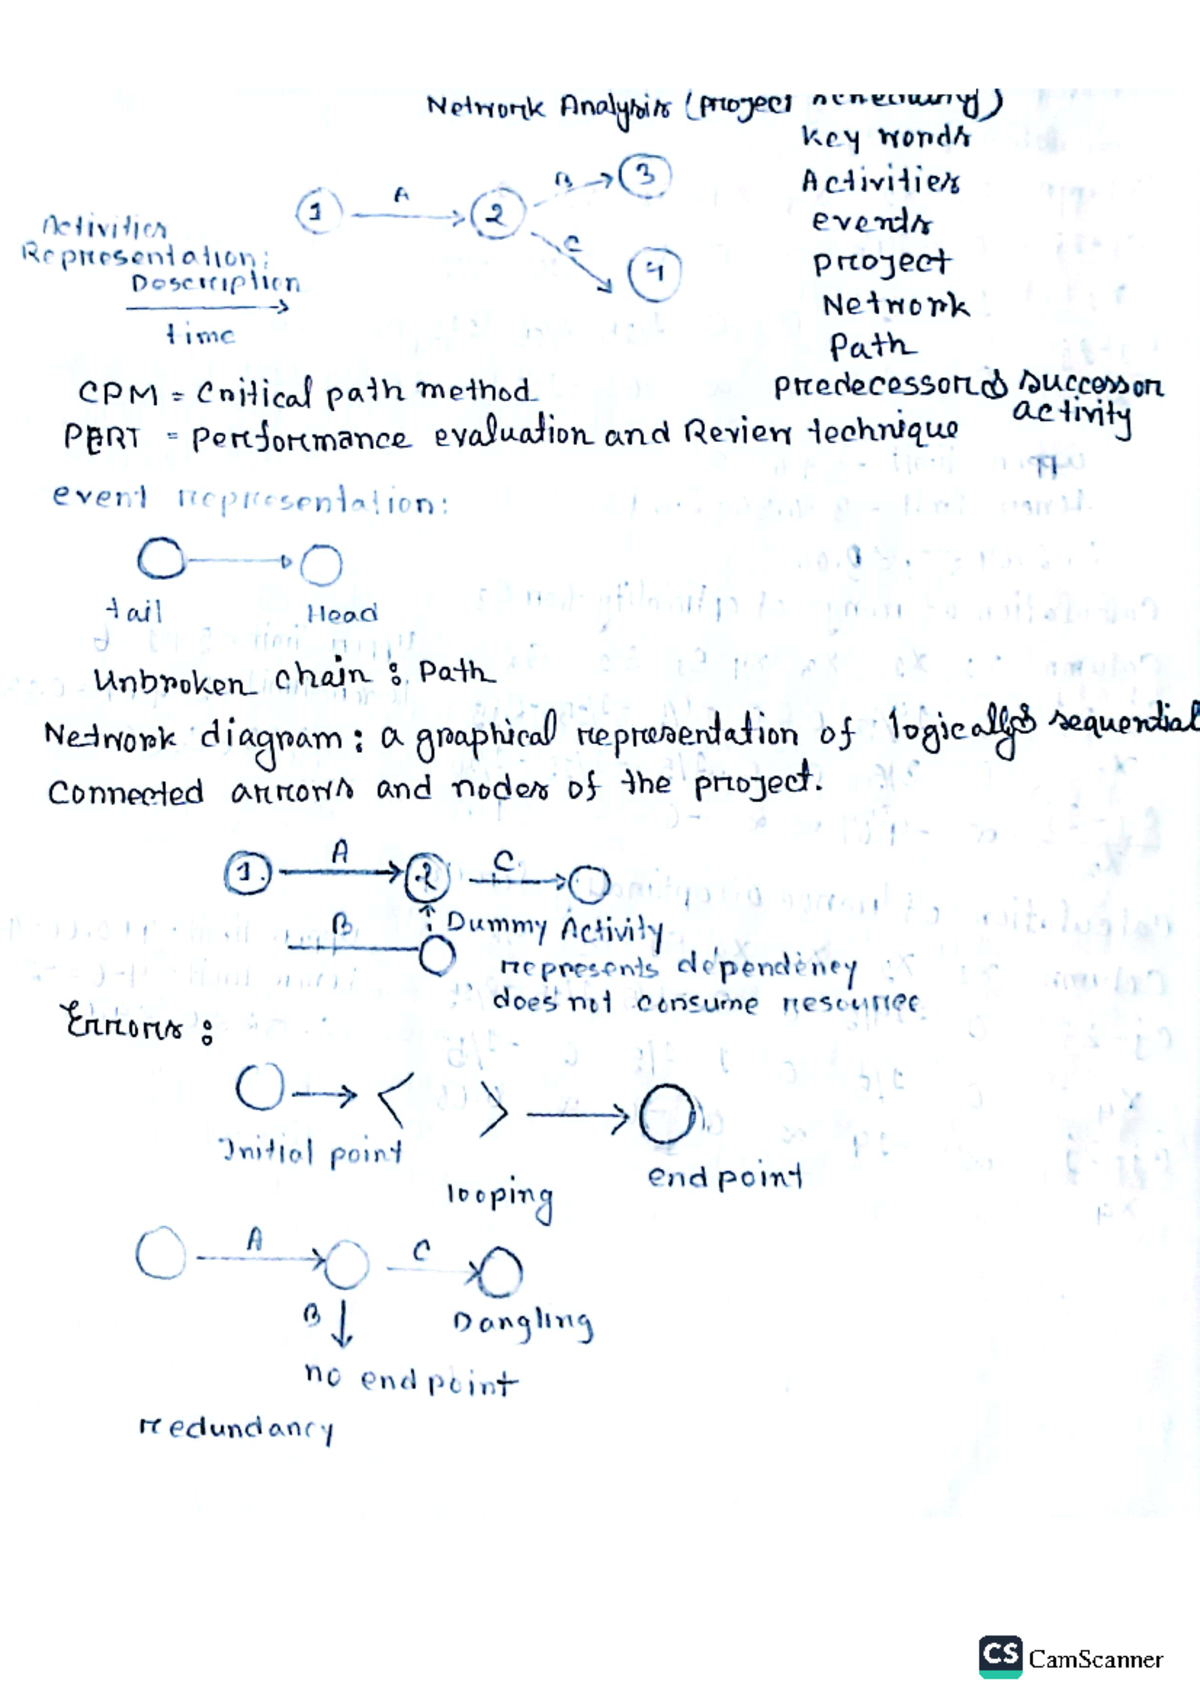 Network Analysis (project scheduling)
Key words
Activities
events
project
Network
Path
predecessor & successor
activity
1 A 2 B 3
C 4
Activities
Representation:
Description
time
CPM = Critical path method
PERT = Performance evaluation and Review technique
event representation:
tail Head
Unbroken chain : Path
Network diagram : a graphical representation of logically & sequential
Connected arrows and nodes of the project.
1 A 2 C
B Dummy Activity
represents dependency
does not consume resource
Errors :
Initial point
looping
end point
A C
B Dangling
no end point
redundancy
CS CamScanner